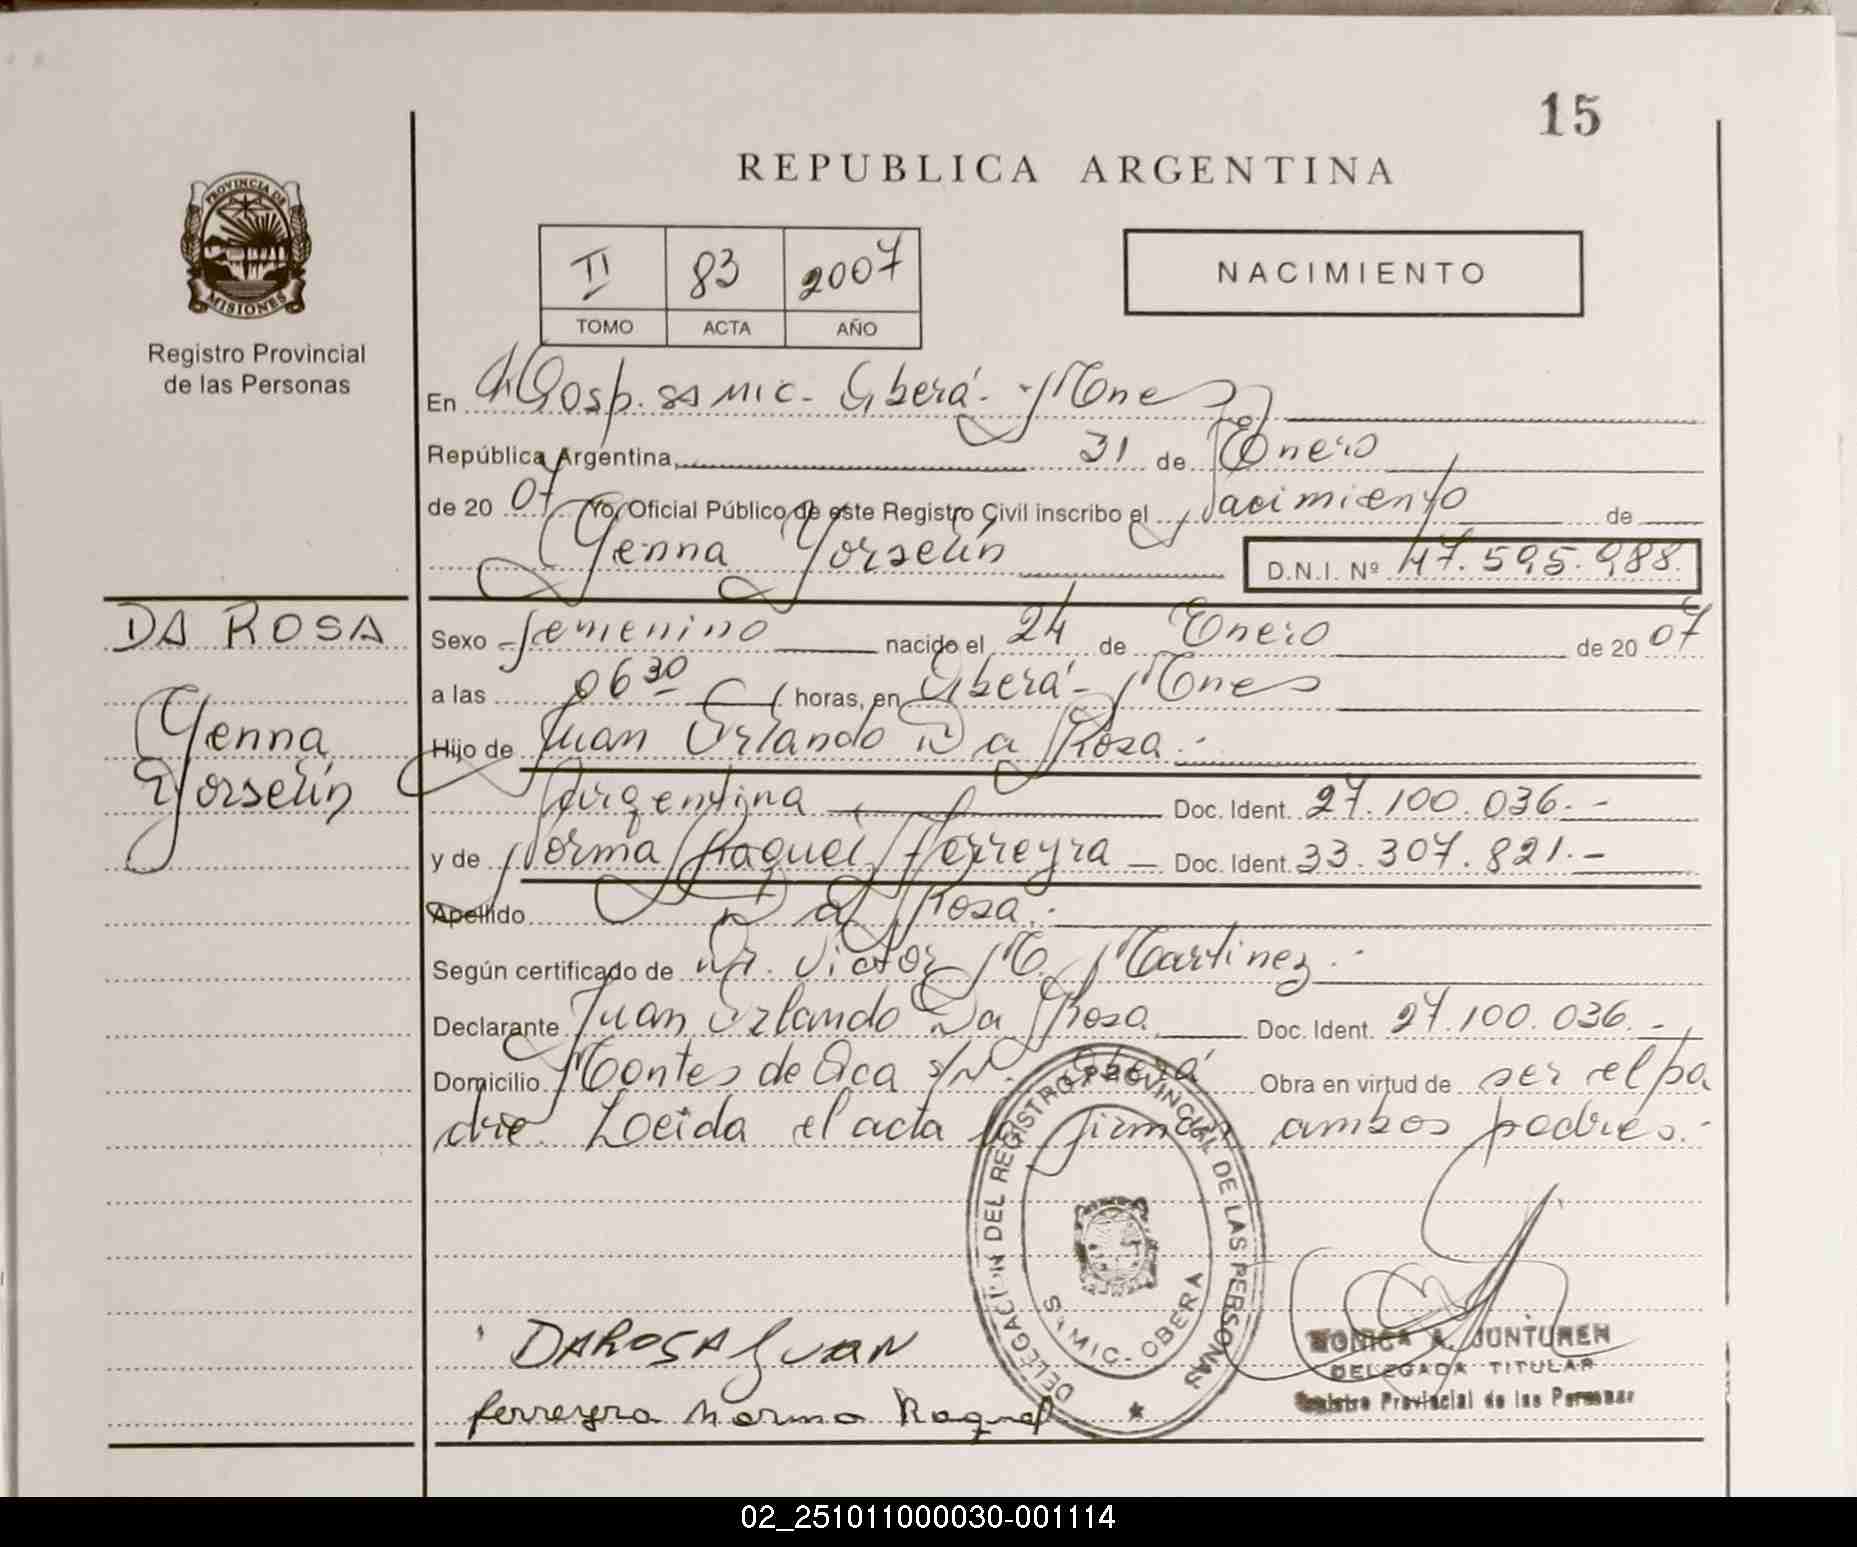 15
REPUBLICA ARGENTINA
PROVINCIA DE
MISIONES
Registro Provincial
de las Personas
II 83 2007
TOMO ACTA AÑO
NACIMIENTO
En Hosp. SAMIC - Oberá - Mnes
República Argentina, 31 de Enero
de 20 07 Yo, Oficial Público de este Registro Civil inscribo el Nacimiento de
Yenna Yorselin D.N.I. Nº 47.595.988.
DA ROSA
Yenna
Yorselin
Sexo femenino nacido el 24 de Enero de 20 07
a las 06 30 horas, en Oberá - Mnes
Hijo de Juan Orlando Da Rosa.-
Argentina Doc. Ident. 27.100.036.-
y de Norma Raquel Ferreyra — Doc. Ident. 33.307.821.-
Apellido Da Rosa.-
Según certificado de Dr. Victor M. Martinez.-
Declarante Juan Orlando Da Rosa Doc. Ident. 27.100.036.-
Domicilio Montes de Oca s/Nº Oberá Obra en virtud de ser el pa
dre. Leida el acta la firman ambos padres.-
DELEGACION DEL REGISTRO PROVINCIAL DE LAS PERSONAS
SAMIC - OBERA
DAROSA JUAN
ferreyra Norma Raquel
MONICA A. JUNTUREN
DELEGADA TITULAR
Registro Provincial de las Personas
02_251011000030-001114